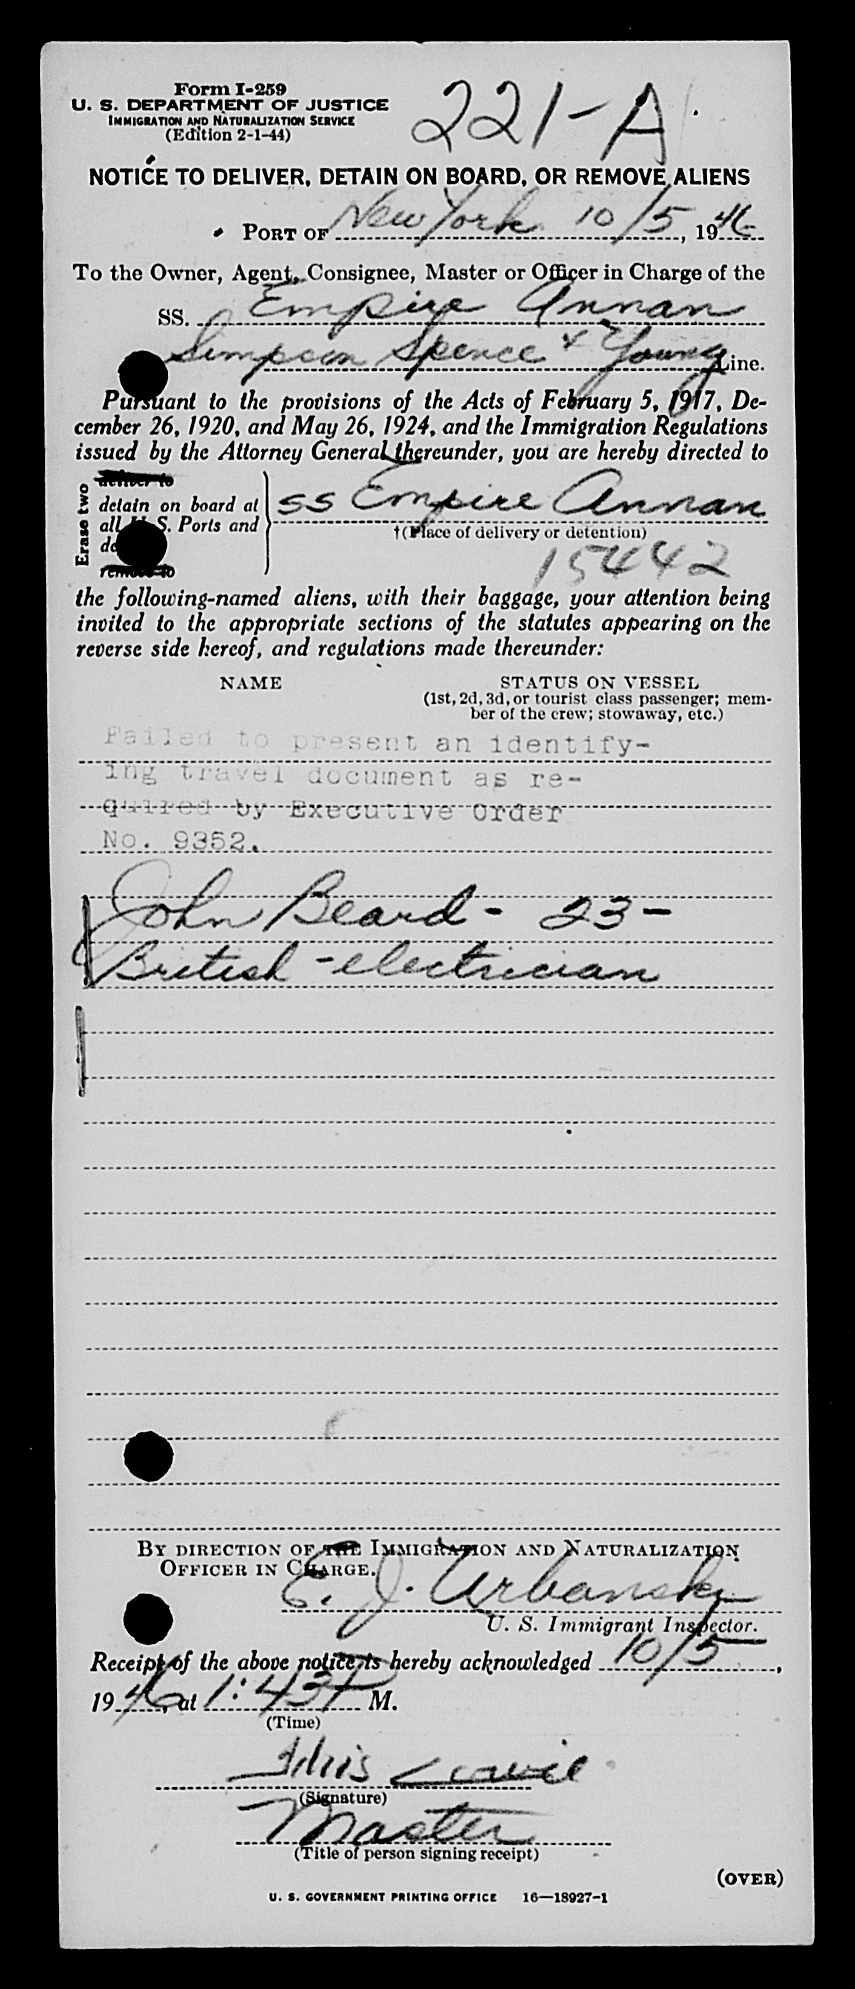 Form I-259
U. S. DEPARTMENT OF JUSTICE
IMMIGRATION AND NATURALIZATION SERVICE
(Edition 2-1-44)
221-A
NOTICE TO DELIVER, DETAIN ON BOARD, OR REMOVE ALIENS
PORT OF New York 10/5, 1946
To the Owner, Agent, Consignee, Master or Officer in Charge of the
SS. Empire Annan
Simpson Spence & Young Line.
Pursuant to the provisions of the Acts of February 5, 1917, De-
cember 26, 1920, and May 26, 1924, and the Immigration Regulations
issued by the Attorney General thereunder, you are hereby directed to
Erase two
deliver to
detain on board at
all U. S. Ports and
remove to
SS Empire Annan
†(Place of delivery or detention)
15442
the following-named aliens, with their baggage, your attention being
invited to the appropriate sections of the statutes appearing on the
reverse side hereof, and regulations made thereunder:
NAME
STATUS ON VESSEL
(1st, 2d, 3d, or tourist class passenger; mem-
ber of the crew; stowaway, etc.)
Failed to present an identify-
ing travel document as re-
quired by Executive Order
No. 9352.
John Beard - 23 -
British - electrician
BY DIRECTION OF THE IMMIGRATION AND NATURALIZATION
OFFICER IN CHARGE.
E. J. Urbanski
U. S. Immigrant Inspector.
Receipt of the above notice is hereby acknowledged 10/5,
1946, at 1:43 P M.
(Time)
(Signature)
Master
(Title of person signing receipt)
(OVER)
U. S. GOVERNMENT PRINTING OFFICE 16—18927-1